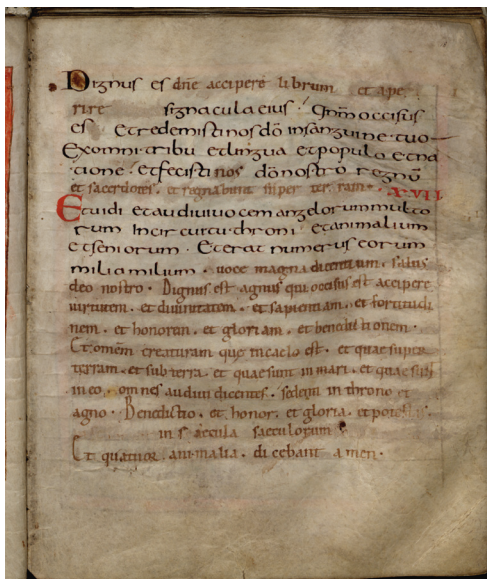 Dignus es dñe accipere librum et ape
rire signacula eius. Qnm̄ occisus
es Et redemisti nos dō in sanguine tuo
Ex omni tribu et lingua et populo et na
tione. et fecisti nos dō nostro regnū
et sacerdotes. et regnabunt super terram. XVII.
Et uidi et audiui uocem angelorum multo
rum in circuitu throni et animalium
et seniorum. Et erat numerus eorum
milia milium. uoce magna dicentium. salus
deo nostro. Dignus est agnus qui occisus est accipere
uirtutem. et diuinitatem. et sapientiam. et fortitudi
nem. et honorem. et gloriam. et benedictionem.
Et omēm creaturam que in caelo est. et quae super
terram. et sub terra. et quae sunt in mari. et quae sunt
in eo. omnes audiui dicentes. sedenti in throno et
agno. Benedictio. et honor. et gloria. et potestas.
in saecula saeculorum
Et quatuor animalia. dicebant amen.